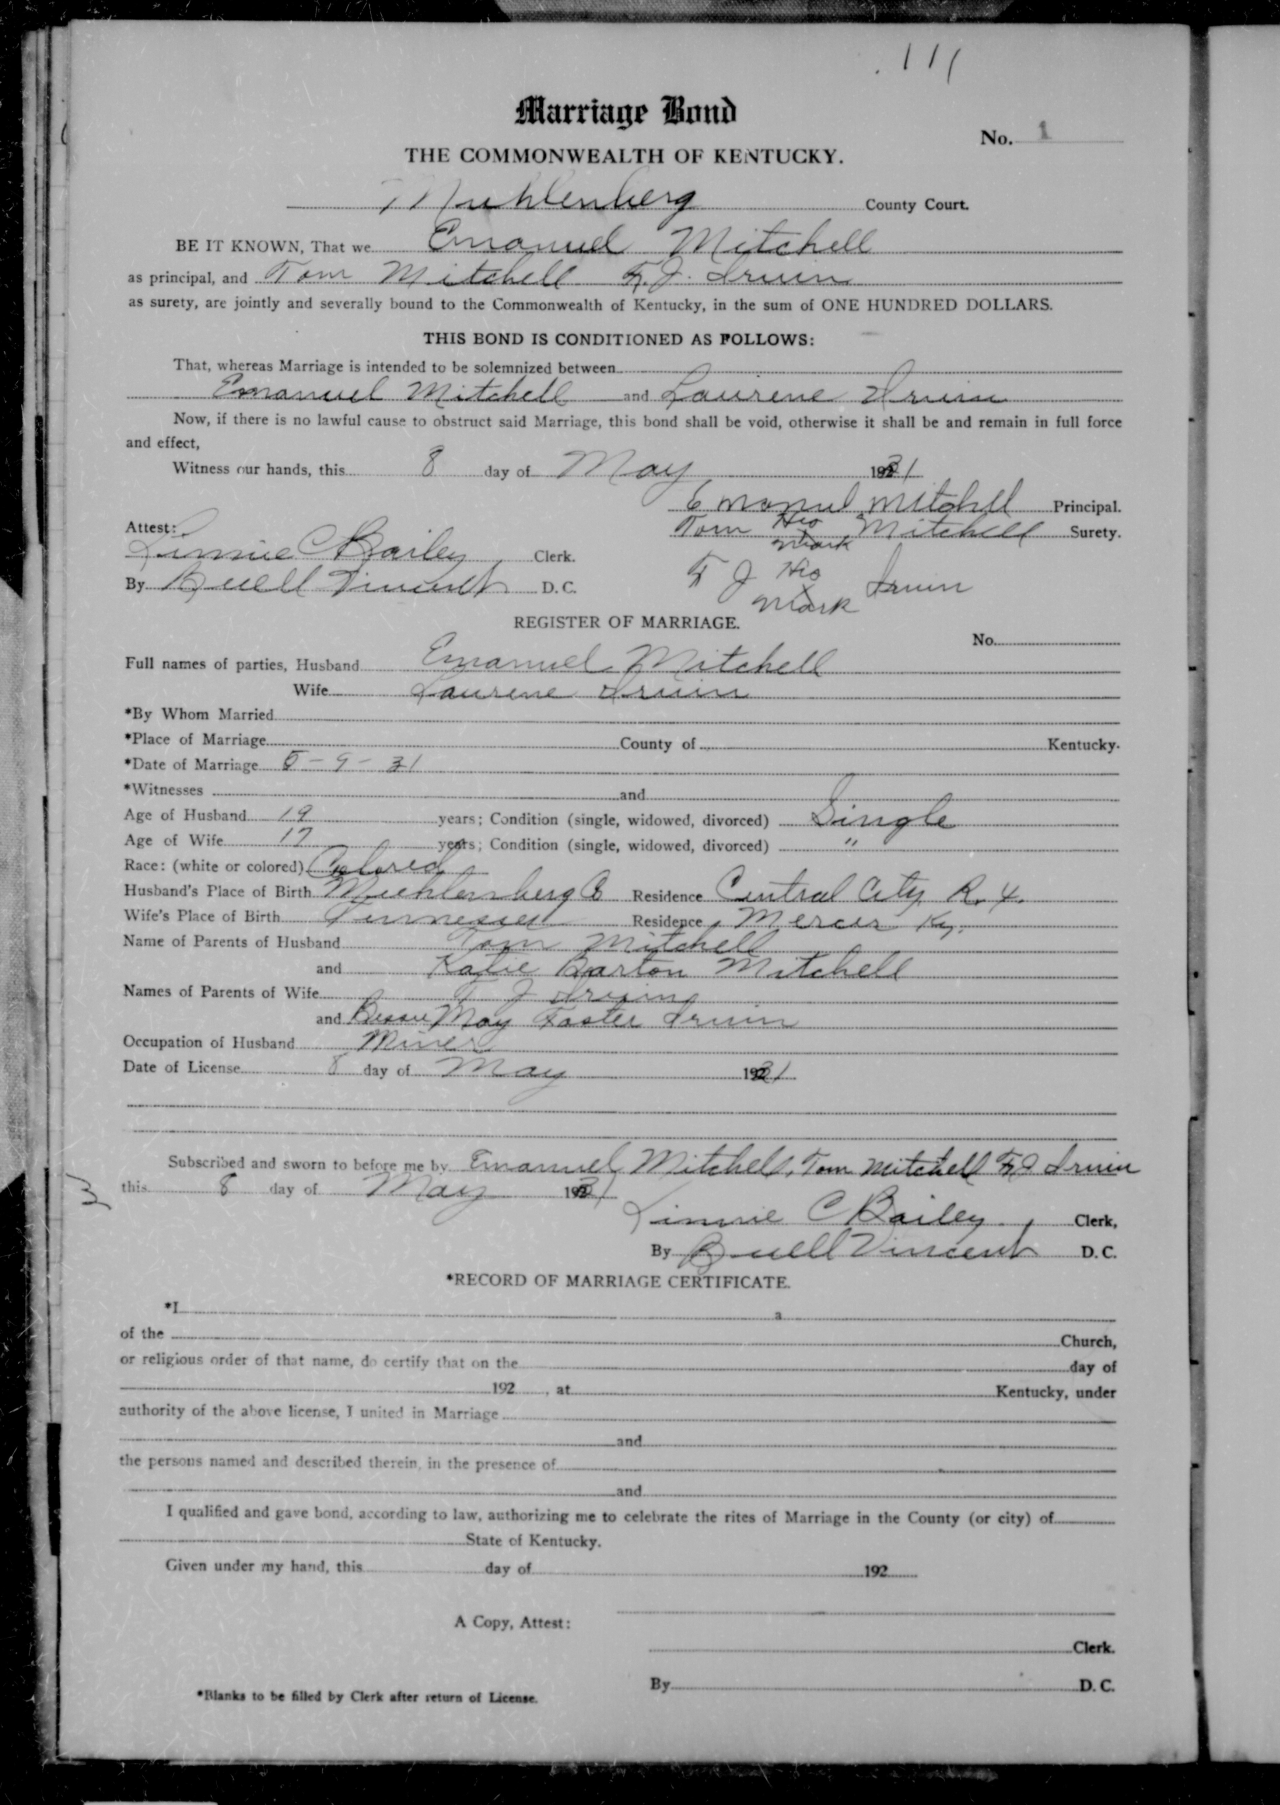 111
Marriage Bond
No. 1
THE COMMONWEALTH OF KENTUCKY.
Muhlenberg County Court.
BE IT KNOWN, That we Emanuel Mitchell
as principal, and Tom Mitchell F. J. Irwin
as surety, are jointly and severally bound to the Commonwealth of Kentucky, in the sum of ONE HUNDRED DOLLARS.
THIS BOND IS CONDITIONED AS FOLLOWS:
That, whereas Marriage is intended to be solemnized between
Emanuel Mitchell and Laurene Irwin
Now, if there is no lawful cause to obstruct said Marriage, this bond shall be void, otherwise it shall be and remain in full force
and effect,
Witness our hands, this 8 day of May 1931
Emanuel Mitchell Principal.
Attest: Tom His Mitchell Surety.
mark
Linnie C Bailey Clerk.
F J His Irwin
By Buell Vincent D. C.
mark
REGISTER OF MARRIAGE.
No.
Full names of parties, Husband Emanuel Mitchell
Wife Laurene Irwin
*By Whom Married
*Place of Marriage County of Kentucky.
*Date of Marriage 5-9-31
*Witnesses and
Age of Husband 19 years; Condition (single, widowed, divorced) Single
Age of Wife 17 years; Condition (single, widowed, divorced) "
Race: (white or colored) Colored
Husband's Place of Birth Muhlenberg Co Residence Central City R. 4.
Wife's Place of Birth Tennessee Residence Mercer Ky.
Name of Parents of Husband Tom Mitchell
and Katie Barton Mitchell
Names of Parents of Wife F J Irwin
and Bessie May Foster Irwin
Occupation of Husband Miner
Date of License 8 day of May 1931
Subscribed and sworn to before me by Emanuel Mitchell, Tom Mitchell F J Irwin
this 8 day of May 1931
Linnie C Bailey, Clerk,
By Buell Vincent D. C.
*RECORD OF MARRIAGE CERTIFICATE.
*I a
of the Church,
or religious order of that name, do certify that on the day of
192 , at Kentucky, under
authority of the above license, I united in Marriage
and
the persons named and described therein, in the presence of
and
I qualified and gave bond, according to law, authorizing me to celebrate the rites of Marriage in the County (or city) of
State of Kentucky.
Given under my hand, this day of 192
A Copy, Attest:
Clerk.
By D. C.
*Blanks to be filled by Clerk after return of License.